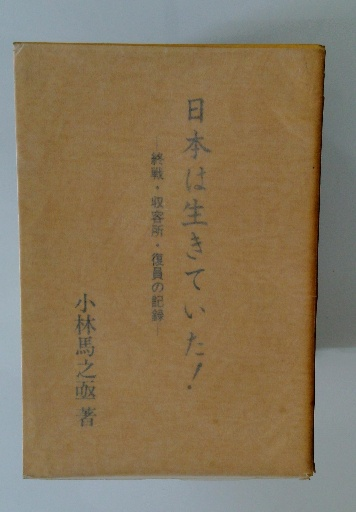 日本は生きていた!
—終戦・収容所・復員の記録—
小林馬之亟 著